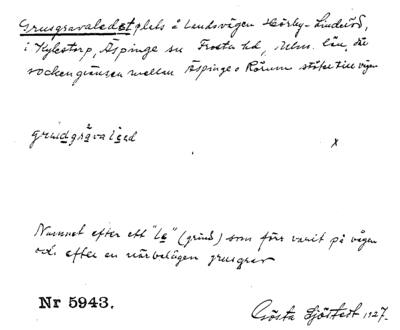 Grusgravaledet plats å landsvägen Hörby-Linderöd,
i Kylestorp, Äspinge sn Frosta hd, Mlm. län, där
sockengränsen mellan Äspinge o Rörum stöter till vägen
grusdgrávalẹd x
Namnet efter ett "le" (grind) som förr varit på vägen
och efter en närbelägen grusgrav
Nr 5943.
Gösta Sjöstedt 1927.